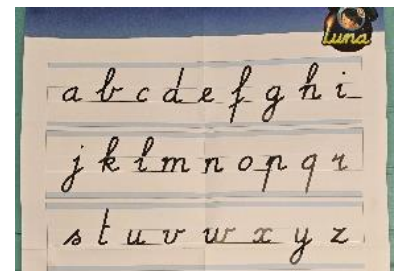 Luna
a b c d e f g h i
j k l m n o p q r
s t u v w x y z